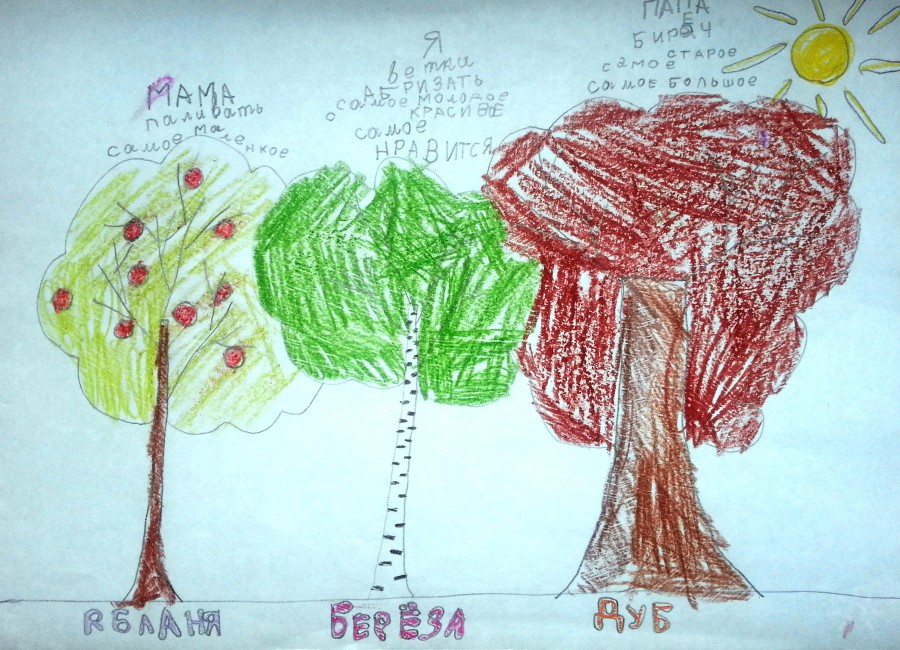 МАМА
паливать
самое маленкое
Я
ветки
АБРИЗАТЬ
самое молодое
с КРАСИВОЕ
самое
НРАВИТСЯ
ПАПА
БИРЕЧ
самое СТАРОЕ
самое большое
ЯБЛАНЯ
БЕРЁЗА
ДУБ